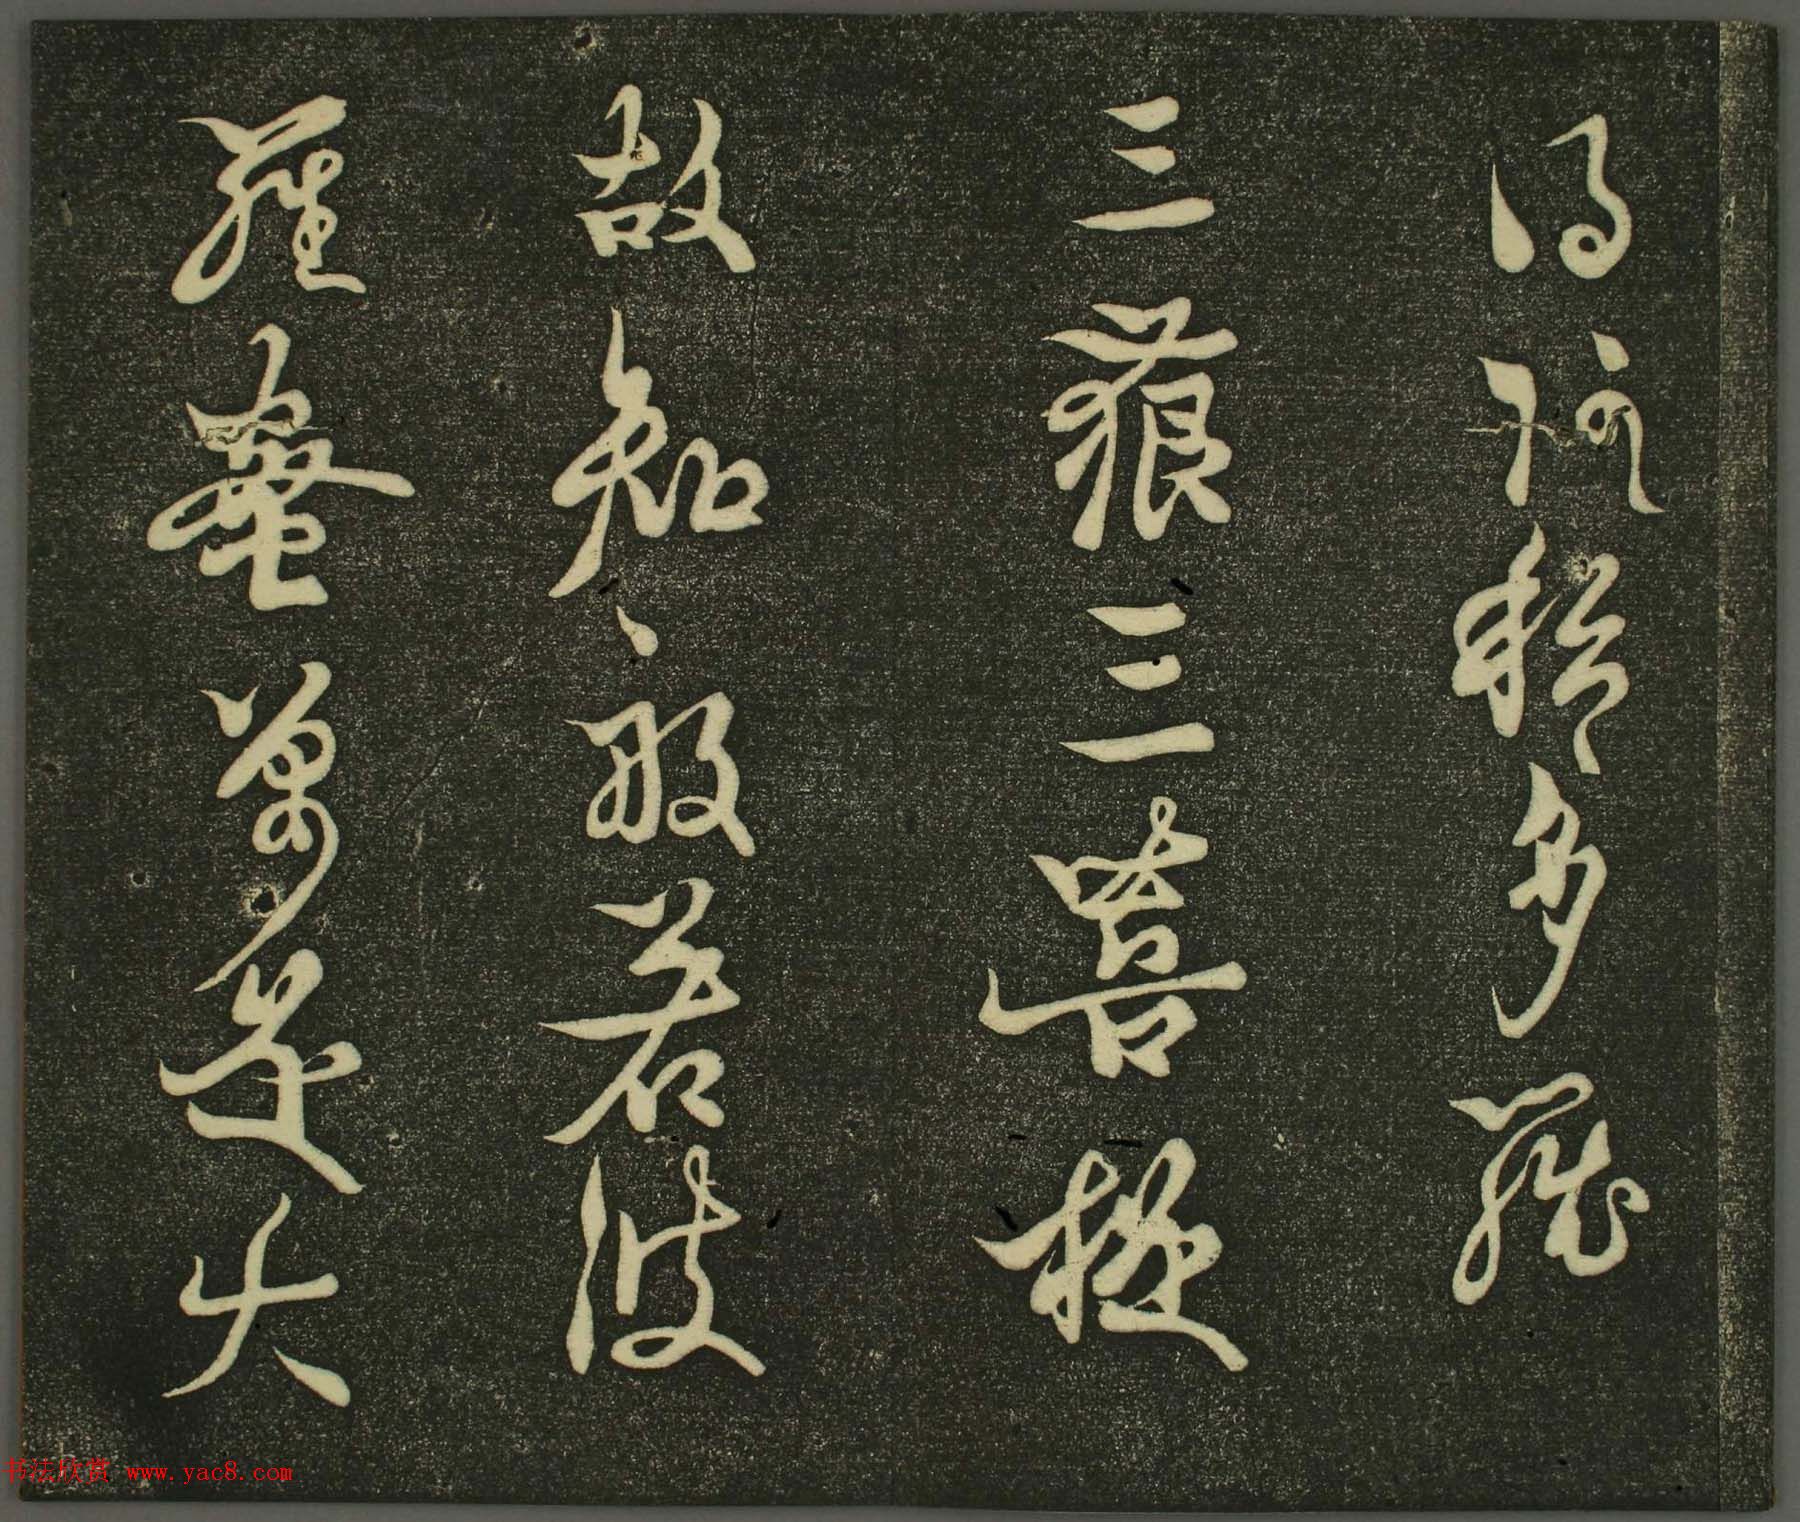 得阿耨多羅
三藐三菩提
故知般若波
羅蜜多是大
书法欣赏 www.yac8.com